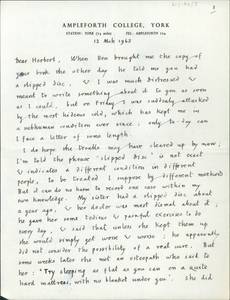 AMPLEFORTH COLLEGE, YORK
STATION: YORK (23 miles) TEL: AMPLEFORTH 224
12 Mch 1963
Dear Herbert, When Ben brought me the copy of
your book the other day he told me you had
a slipped disc, & I was much distressed &
meant to write something about it to you as soon
as I could, but on Friday I was suddenly attacked
by the most hideous cold, which has kept me in
a subhuman condition ever since; only to-day can
I face a letter of some length.
I do hope the trouble may have cleared up by now;
I'm told the phrase 'slipped disc' is not exact
& indicates a different condition in different
people, to be treated I suppose by different methods
But it can do no harm to record one case within my
own knowledge. My sister had a slipped disc about
a year ago, & her doctor was most dismal about it;
he gave her some tedious & painful exercises to do
every day, & said that unless she kept them up
she would simply get worse & worse; he apparently
did not consider the possibility of a real cure. But
some weeks later she met an osteopath who said to
her: 'Try sleeping as flat as you can on a quite
hard mattress, with no blanket under you'. She did